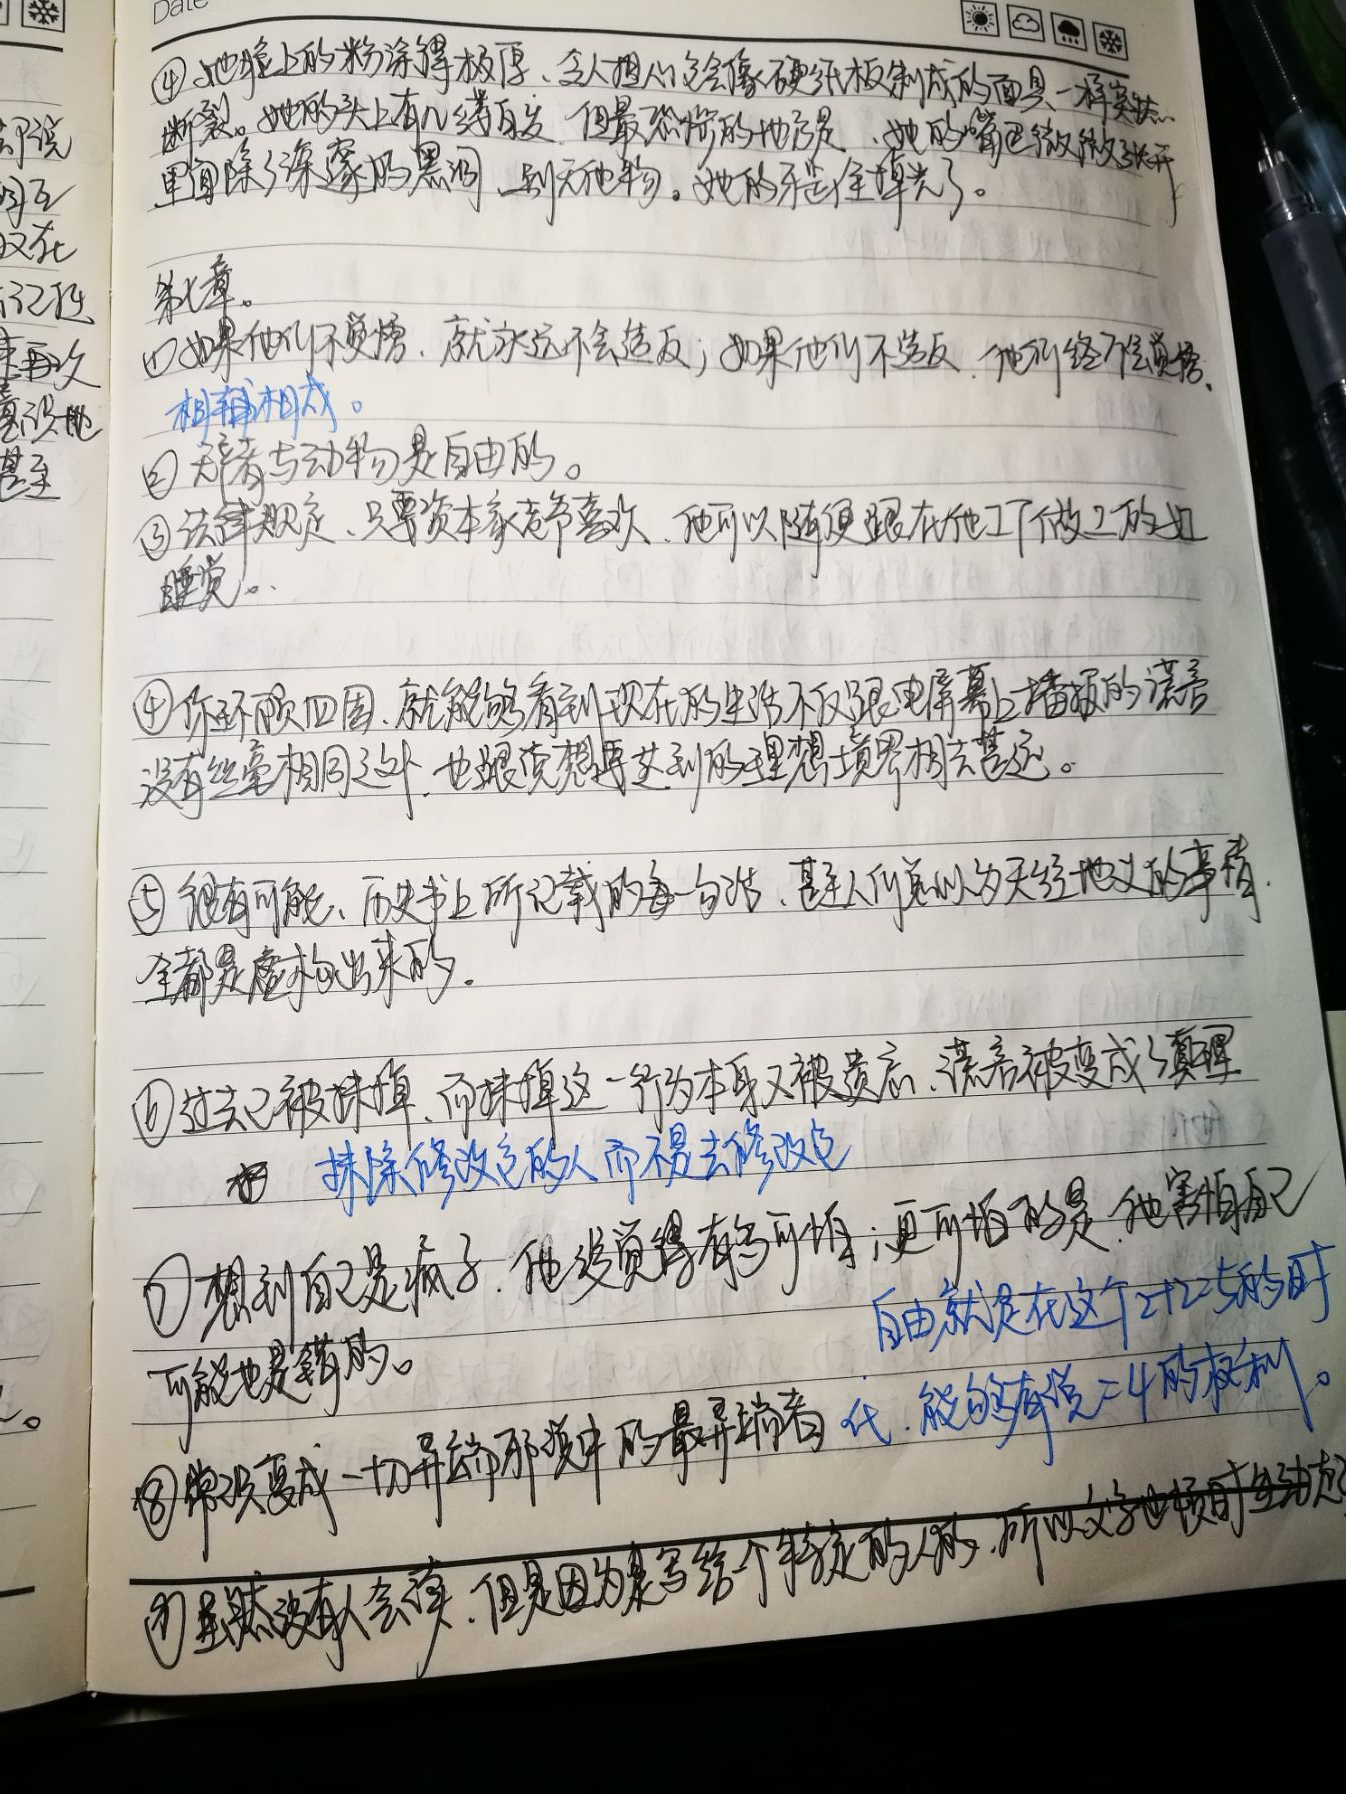 Date
④她脸上的粉涂得极厚、令人担心它会像硬纸板制成的面具一样突然
断裂。她的头上有几缕白发、但最恐怖的地方是、她的嘴巴微微张开
里面除了深邃的黑洞、别无他物。她的牙是全掉光了。
第七章。
①如果他们不觉悟、就永远不会造反；如果他们不造反、他们终不会觉悟、
相辅相成。
②无产者与动物是自由的。
③法律规定、只要资本家老爷喜欢、他可以随便跟在他工厂做工的女工
睡觉。
④你环顾四周、就能够看到现在的生活不仅跟电屏幕上播报的谎言
没有丝毫相同之处、也跟党想要达到的理想境界相去甚远。
⑤很有可能、历史书上所记载的每一句话、甚至人们觉以为天经地义的事情、
全都是虚构出来的。
⑥过去已被抹掉、而抹掉这一行为本身又被遗忘、谎言被变成了真理
抹除修改它的人而不是去修改它
⑦想到自己是疯子、他没觉得有多可怕；更可怕的是、他害怕自己
可能也是错的。
自由就是在这个2+2=5的时
代、能够有说=4的权利。
⑧常识变成一切异端邪说中的最异端者
⑨虽然没有人会读、但是因为是写给一个特定的人的、所以文字也顿时生动起
却说
又在
来再次
甚至